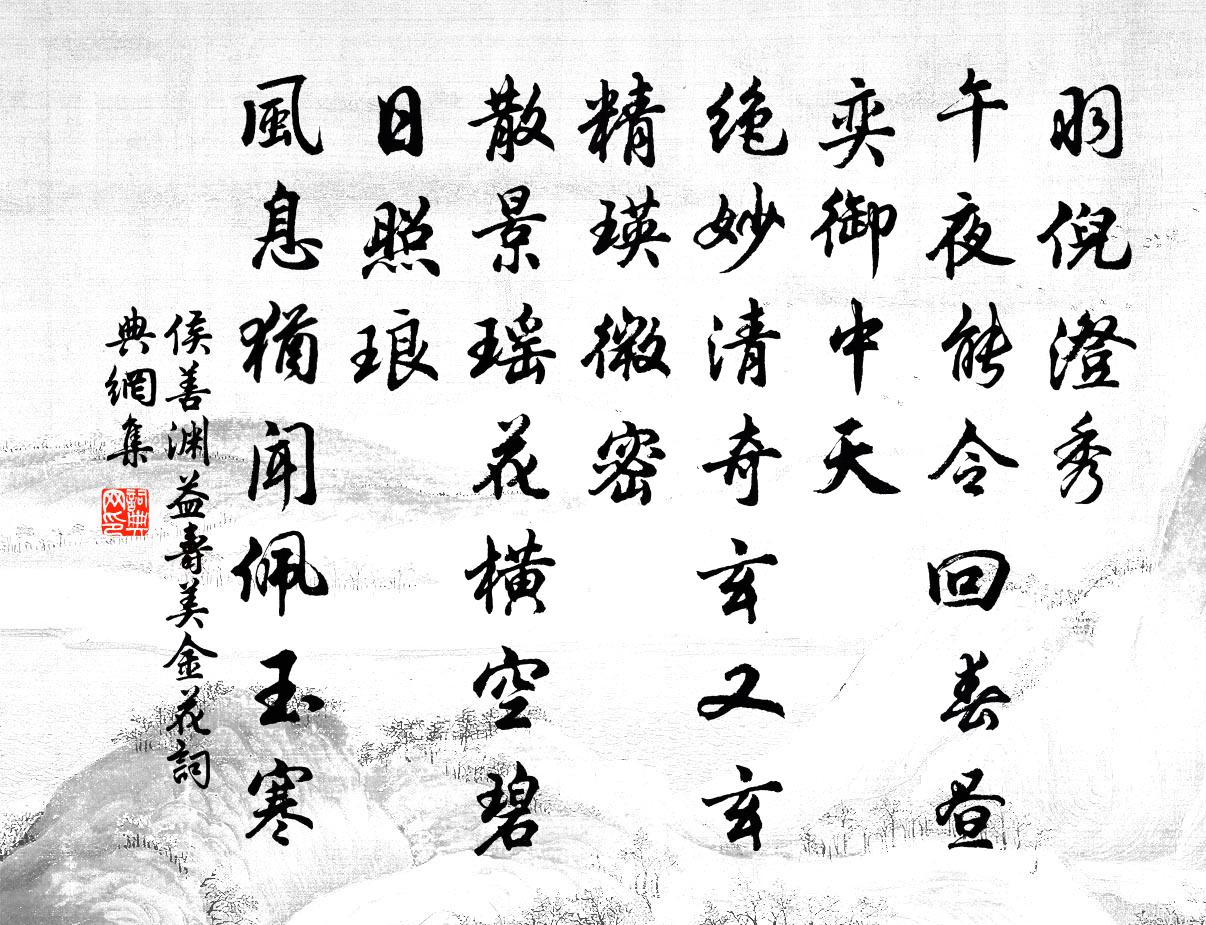 羽倪澄秀
午夜能令回春昼
奕御中天
绝妙清奇玄又玄
精瑛微密
散景瑶花横空碧
日照琅
風息猶闻佩玉寒
侯善渊益寿美金花詞
典網集
詞典網印